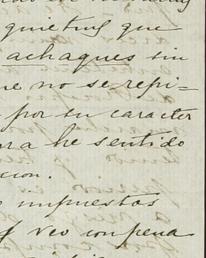 quietud que
achaques sin
ue no se repi-
por su caracter
ra he sentido
cion.
impuestos
y veo con pena